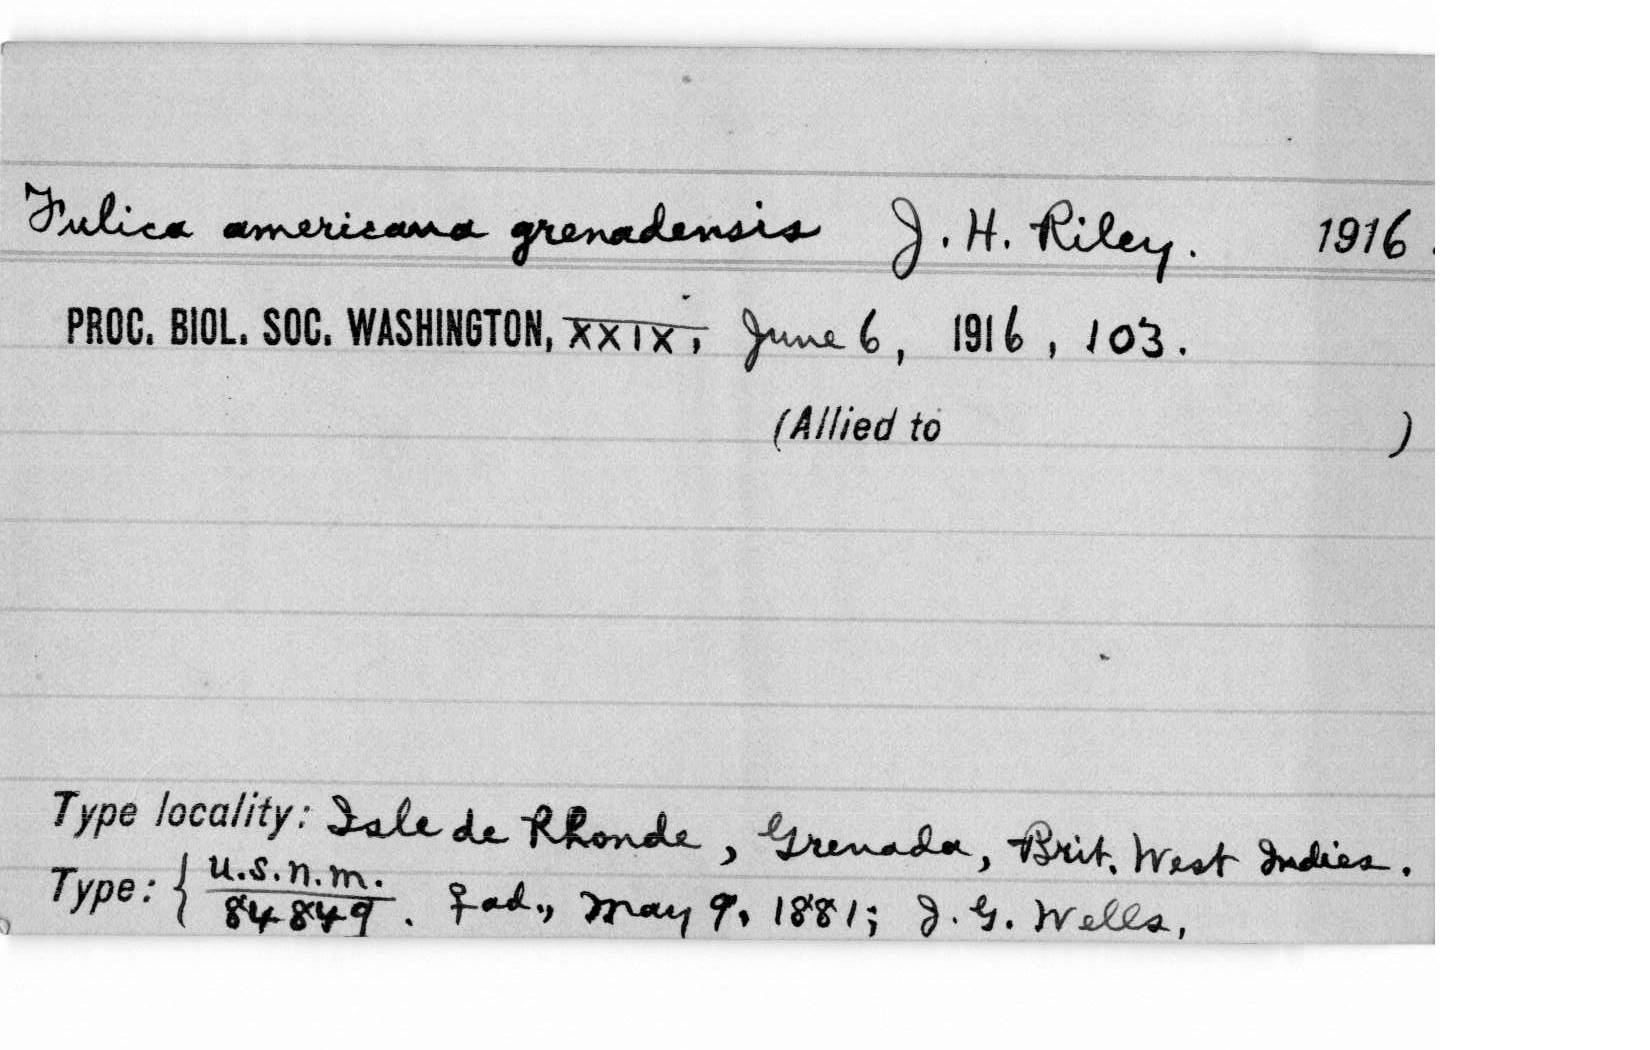 Fulica americana grenadensis J. H. Riley. 1916.
PROC. BIOL. SOC. WASHINGTON, XXIX, June 6, 1916, 103.
(Allied to )
Type locality: Isle de Rhonde, Grenada, Brit. West Indies.
Type: { U.S.N.M.
84849. ♀ ad., May 9, 1881; J. G. Wells,